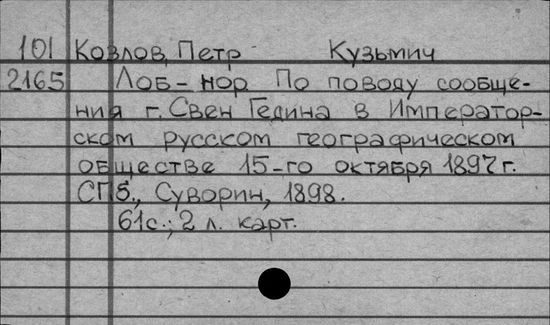 101 Козлов, Петр Кузьмич
2165 Лоб-нор. По поводу сообще-
ния г. Свен Гедина в Император-
ском русском географическом
обществе 15-го октября 1897 г.
СПб., Суворин, 1898.
61с.; 2 л. карт.